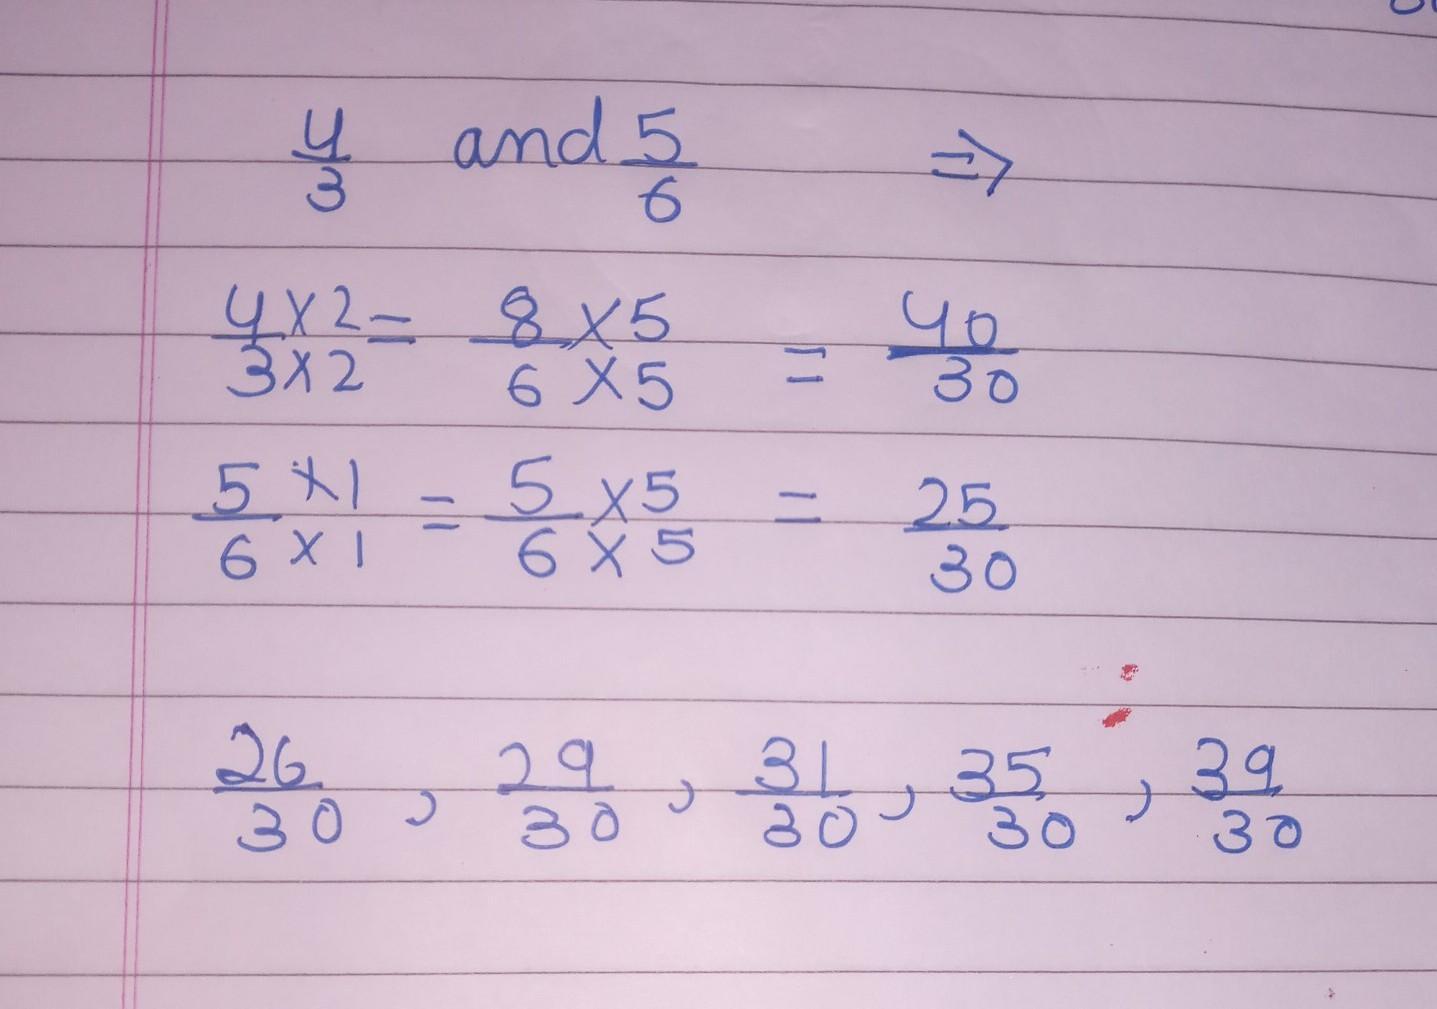 4/3 and 5/6 ⇒
4×2/3×2 = 8×5/6×5 = 40/30
5×1/6×1 = 5×5/6×5 = 25/30
26/30, 29/30, 31/30, 35/30, 39/30